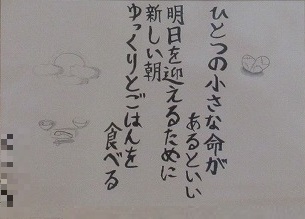 ひとつの小さな命が
あるといい
明日を迎えるために
新しい朝
ゆっくりとごはんを
食べる